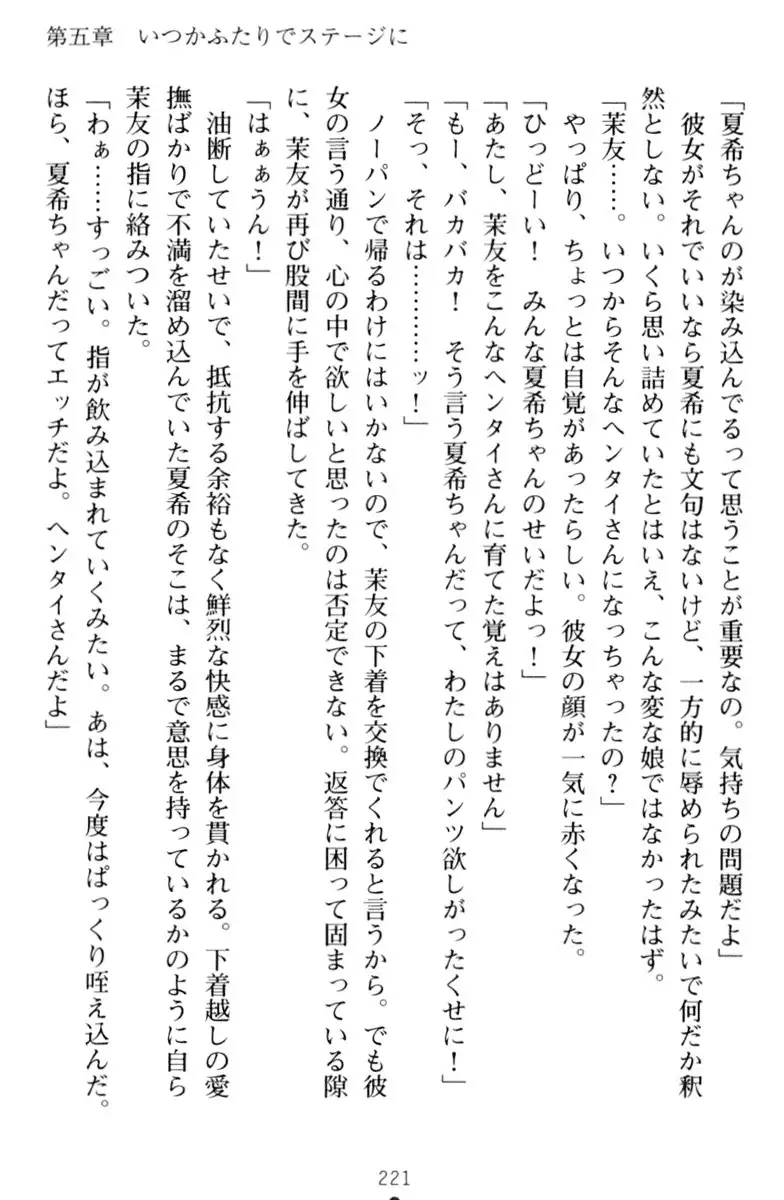 第五章　いつかふたりでステージに
「夏希ちゃんのが染み込んでるって思うことが重要なの。気持ちの問題だよ」
　彼女がそれでいいなら夏希にも文句はないけど、一方的に辱められたみたいで何だか釈
然としない。いくら思い詰めていたとはいえ、こんな変な娘ではなかったはず。
「茉友……。いつからそんなヘンタイさんになっちゃったの？」
　やっぱり、ちょっとは自覚があったらしい。彼女の顔が一気に赤くなった。
「ひっどーい！　みんな夏希ちゃんのせいだよっ！」
「あたし、茉友をこんなヘンタイさんに育てた覚えはありません」
「もー、バカバカ！　そう言う夏希ちゃんだって、わたしのパンツ欲しがったくせに！」
「そっ、それは…………ッ！」
　ノーパンで帰るわけにはいかないので、茉友の下着を交換でくれると言うから。でも彼
女の言う通り、心の中で欲しいと思ったのは否定できない。返答に困って固まっている隙
に、茉友が再び股間に手を伸ばしてきた。
「はぁぁうん！」
　油断していたせいで、抵抗する余裕もなく鮮烈な快感に身体を貫かれる。下着越しの愛
撫ばかりで不満を溜め込んでいた夏希のそこは、まるで意思を持っているかのように自ら
茉友の指に絡みついた。
「わぁ……すっごい。指が飲み込まれていくみたい。あは、今度はぱっくり咥え込んだ。
ほら、夏希ちゃんだってエッチだよ。ヘンタイさんだよ」
221